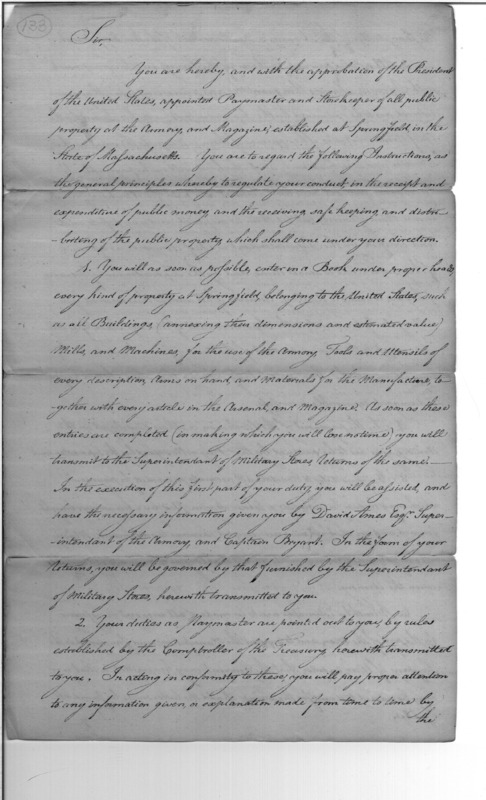 133
Sir,
You are hereby, and with the approbation of the President
of the United States, appointed Paymaster and Storekeeper of all public
property at the Armory, and Magazine, established at Springfield, in the
State of Massachusetts. You are to regard the following Instructions, as
the general principles whereby to regulate your conduct in the receipt and
expenditure of public money and the receiving safe keeping and distri-
-buteing of the public property, which shall come under your direction.
1. You will as soon as possible, enter in a Book under proper heads,
every kind of property at Springfield, belonging to the United States, such
as all Buildings, (annexing their demensions and estimated value)
Mills, and Machines, for the use of the Armory, Tools and Utensils of
every description, Arms on hand, and materials for the Manufacture, to-
-gether with every article in the Arsenal, and Magazine. As soon as these
entries are completed (in making which you will lose no time) you will
transmit to the Superintendant of Military Stores, Returns of the same.—
In the execution of this first part of your duty, you will be assisted, and
have the necessary information given you by David Ames Esqr. Super-
-intendant of the Armory, and Captain Bryant. In the form of your
Returns, you will be governed by that furnished by the Superintendant
of Military Stores, herewith transmitted to you.
2. Your duties as Paymaster are pointed out to you, by rules
established by the Comptroller of the Treasury herewith transmitted
to you. In acting in conformity to these, you will pay proper attention
to any information given, or explanation made from time to time by
the